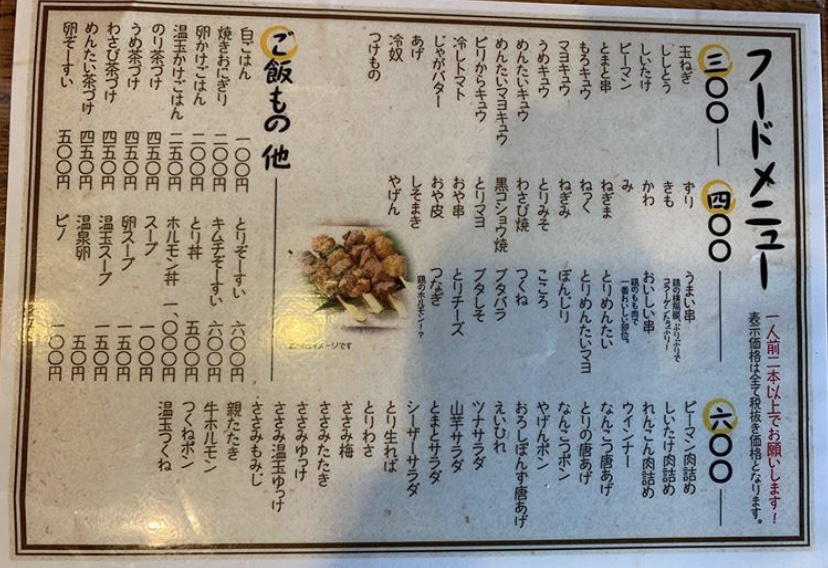 フードメニュー
一人前二本以上でお願いします！
表示価格は全て税抜き価格となります。
三〇〇
玉ねぎ
ししとう
しいたけ
ピーマン
とまと串
もろキュウ
マヨキュウ
うめキュウ
めんたいキュウ
めんたいマヨキュウ
ピリからキュウ
冷しトマト
じゃがバター
あげ
冷奴
つけもの
四〇〇
ずり
きも
かわ
み
ねぎま
ねっく
ねぎみ
とりみそ
わさび焼
黒コショウ焼
とりマヨ
おや串
おや皮
しそまき
やげん
うまい串
鶏の横隔膜。ぷりぷりで
コラーゲンたっぷり！
おいしい串
鶏のもも肉で
一番おいしい部位。
とりめんたい
とりめんたいマヨ
ぼんじり
こころ
つくね
ブタバラ
ブタしそ
とりチーズ
つなぎ
鶏のホルモン！？
六〇〇
ピーマン肉詰め
しいたけ肉詰め
れんこん肉詰め
ウインナー
なんこつ唐あげ
とりの唐あげ
なんこつポン
やげんポン
おろしぽんず唐あげ
えいひれ
ツナサラダ
山芋サラダ
とまとサラダ
シーザーサラダ
とり生ればー
とりわさ
ささみ梅
ささみたたき
ささみゆっけ
ささみ温玉ゆっけ
ささみもみじ
親たたき
牛ホルモン
つくねポン
温玉つくね
ご飯もの 他
白ごはん 一〇〇円
焼きおにぎり 二〇〇円
卵かけごはん 二〇〇円
温玉かけごはん 二五〇円
のり茶づけ 四五〇円
うめ茶づけ 四五〇円
わさび茶づけ 四五〇円
めんたい茶づけ 四五〇円
卵ぞーすい 五〇〇円
とりぞーすい 六〇〇円
キムチぞーすい 六〇〇円
とり丼 五〇〇円
ホルモン丼 一、〇〇〇円
スープ 一〇〇円
卵スープ 一五〇円
温玉スープ 一五〇円
温泉卵 五〇円
ピノ 一〇〇円
イメージです